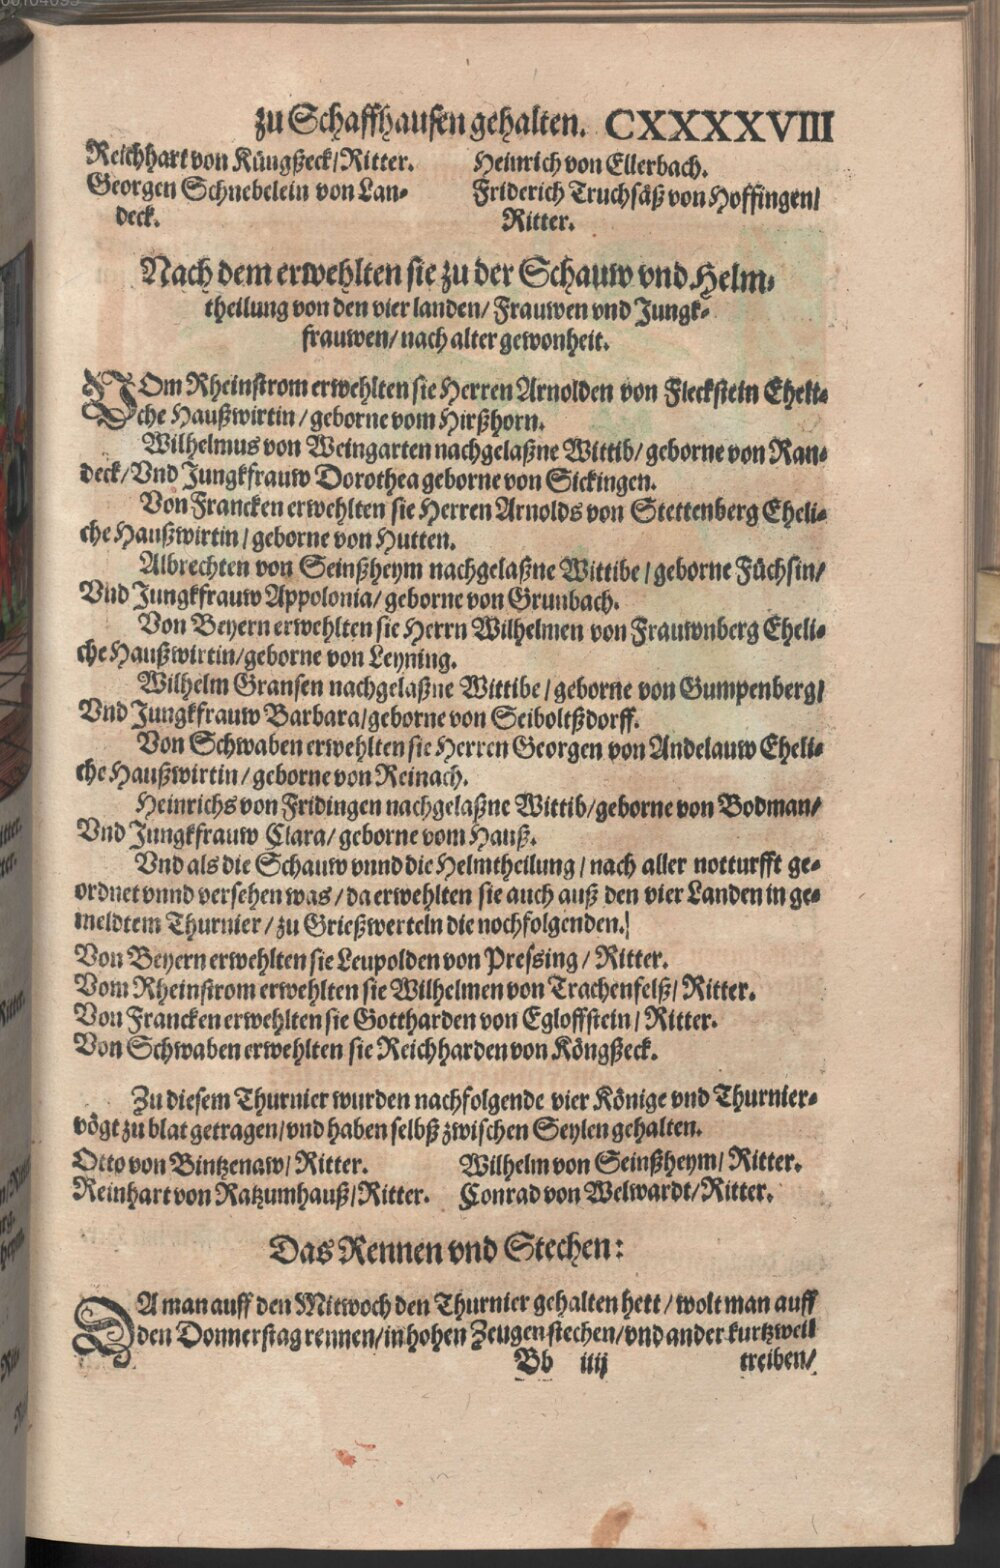 zu Schaffhausen gehalten. CXXXXVIII
Reichhart von Küngßeck/ Ritter.
Georgen Schnebelein von Lan-
deck.
Heinrich von Ellerbach.
Friderich Truchsäß von Hoffingen/
Ritter.
Nach dem erwehlten sie zu der Schauw vnd Helm-
theilung von den vier landen/ Frauwen vnd Jungk-
frauwen/ nach alter gewonheit.
VOm Rheinstrom erwehlten sie Herren Arnolden von Fleckstein Eheli-
che Haußwirtin/ geborne vom Hirßhorn.
Wilhelmus von Weingarten nachgelaßne Wittib/ geborne von Ran-
deck/ Vnd Jungkfrauw Dorothea geborne von Sickingen.
Von Francken erwehlten sie Herren Arnolds von Stettenberg Eheli-
che Haußwirtin/ geborne von Hutten.
Albrechten von Seinßheym nachgelaßne Wittibe/ geborne Füchsin/
Vnd Jungkfrauw Appolonia/ geborne von Grunbach.
Von Beyern erwehlten sie Herrn Wilhelmen von Frauwnberg Eheli-
che Haußwirtin/ geborne von Leyning.
Wilhelm Gransen nachgelaßne Wittibe/ geborne von Gumpenberg/
Vnd Jungkfrauw Barbara/ geborne von Seiboltßdorff.
Von Schwaben erwehlten sie Herren Georgen von Andelauw Eheli-
che Haußwirtin/ geborne von Reinach.
Heinrichs von Fridingen nachgelaßne Wittib/ geborne von Bodman/
Vnd Jungkfrauw Clara/ geborne vom Hauß.
Vnd als die Schauw vnnd die Helmtheilung/ nach aller notturfft ge-
ordnet vnnd versehen was/ da erwehlten sie auch auß den vier Landen in ge-
meldtem Thurnier/ zu Grießwerteln die nochfolgenden.
Von Beyern erwehlten sie Leupolden von Pressing/ Ritter.
Vom Rheinstrom erwehlten sie Wilhelmen von Trachenfelß/ Ritter.
Von Francken erwehlten sie Gottharden von Egloffstein/ Ritter.
Von Schwaben erwehlten sie Reichharden von Köngßeck.
Zu diesem Thurnier wurden nachfolgende vier Könige vnd Thurnier-
vögt zu blat getragen/ vnd haben selbß zwischen Seylen gehalten.
Otto von Bintzenaw/ Ritter.
Reinhart von Ratzumhauß/ Ritter.
Wilhelm von Seinßheym/ Ritter.
Conrad von Welwardt/ Ritter.
Das Rennen vnd Stechen:
DA man auff den Mitwoch den Thurnier gehalten hett/ wolt man auff
den Donnerstag rennen/ in hohen Zeugen stechen/ vnd ander kurtzweil
Bb iiij
treiben/